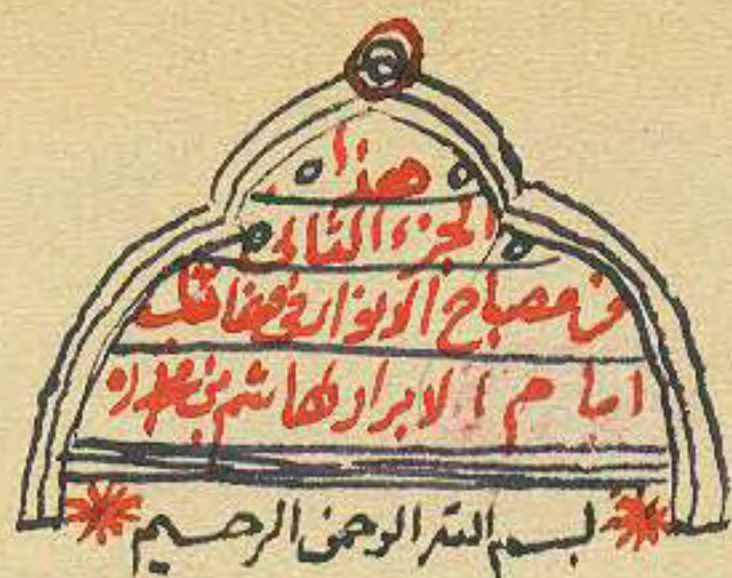 هذا
الجزء الثاني
من مصباح الانوار في مناقب
امام الابرار لهاشم بن
بسم الله الرحمن الرحيم